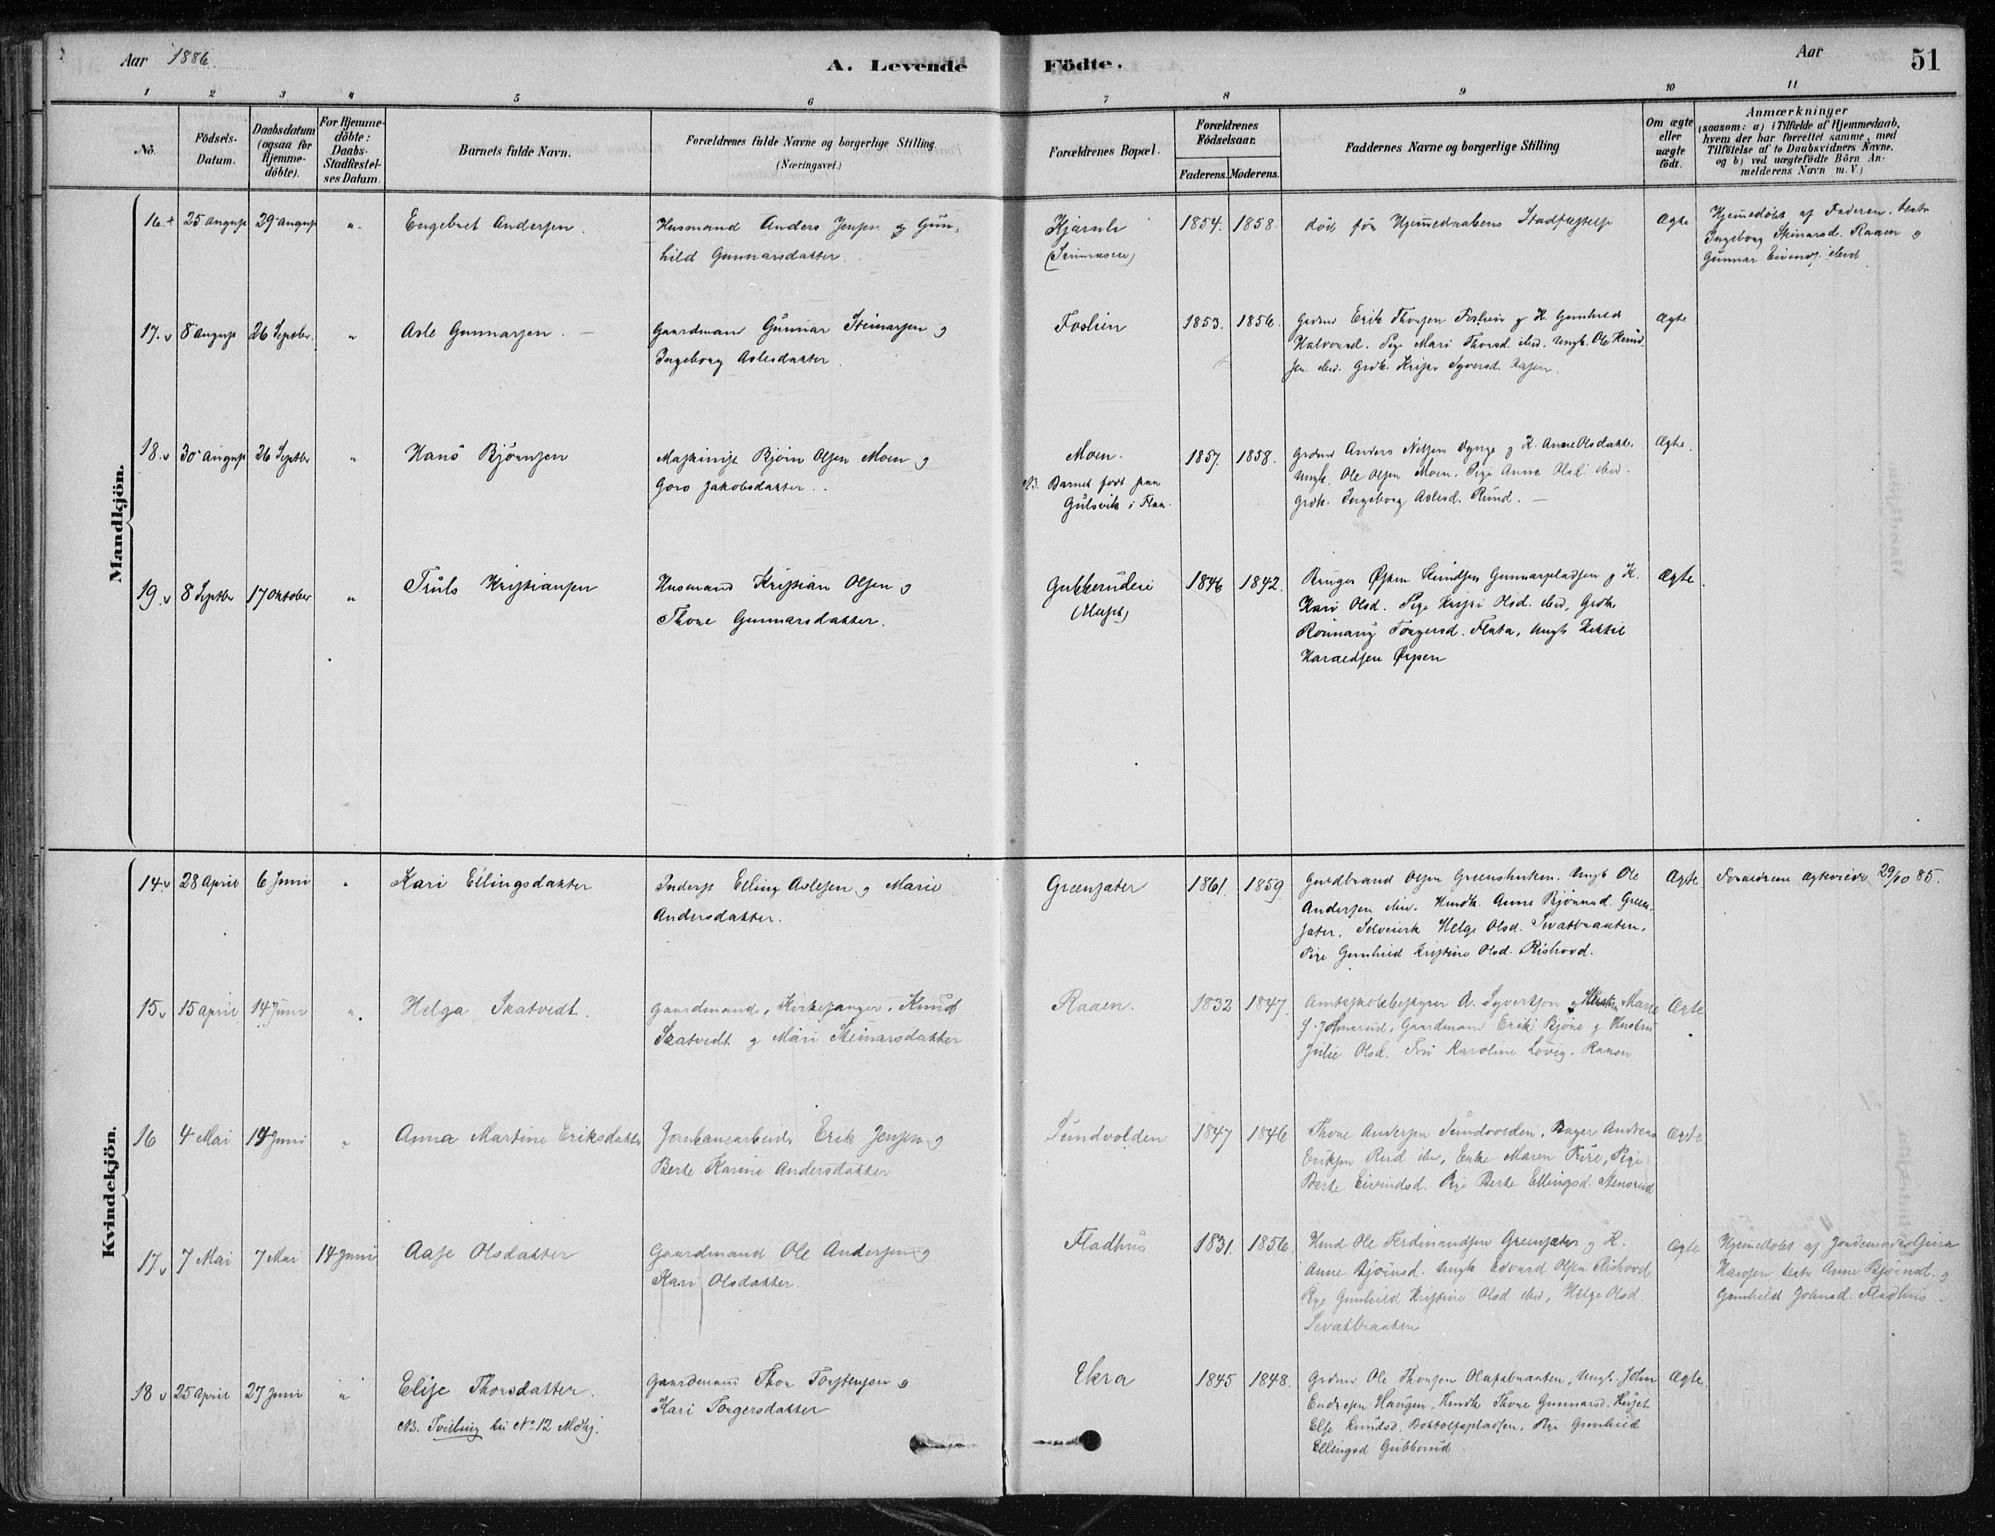 Aar 1886.
A. Levende Födte.
Aar
51
1 2 3 4 5 6 7 8 9 10 11
No.
Födsels-Datum.
Daabsdatum (ogsaa for Hjemme-döbte).
For Hjemme-döbte: Daabs-Stadfæstel-ses Datum.
Barnets fulde Navn.
Forældrenes fulde Navne og borgerlige Stilling (Næringsvei.)
Forældrenes Bopæl.
Forældrenes Födselsaar.
Faderens. Moderens.
Faddernes Navne og borgerlige Stilling
Om ægte eller uægte födt.
Anmærkninger
(saasom: a) i Tilfælde af Hjemmedaab,
hvem der har forrettet samme, med
Tilföielse af to Daabsvidners Navne.
og b) ved uægtefödte Börn An-
melderens Navn m. V.)
Mandkjön.
16 + 25 august 29 august " Engebret Andersen.
Husmand Anders Jensen og Gun-
hild Gunnarsdatter.
Kjærnli
1854. 1858.
død før Hjemmedaabens Stadfæstelse
Ægte
Hjemmedøbt af Faderen. testes
Ingeborg Steinarsd. Raaen og
Gunnar Eivinds. ibid
17. v 8 august 26 Septbr. " Asle Gunnarsen.
Gaardmand Gunnar Steinarsen og
Ingeborg Aslesdatter.
Foslien
1853. 1856.
Grdmd Erik Thorsen Foslien og H. Gunhild
Halvorsd. Pige Mari Thorsd. ibid. Ungk. Ole Knud-
sen ibid. Grdk. Kristi Syversd.
Ægte
18. v 30 august 26 Septbr " Hans Bjørnsen
Maskinist Bjørn Olsen Moen og
Goro Jakobsdatter.
Moen.
NB. Barnet født paa
Gulsvik i Flaa.
1857. 1858.
Grdmd Anders Nilsen og H. Anne Olsdatter
Ungk. Ole Olsen Moen. Pige Anne Olsd ibid.
Grdk. Ingeborg Aslesd. Rund.
Ægte.
19. v 8 Septbr 17 Oktober " Truls Kristiansen
Husmand Kristian Olsen og
Thone Gunnarsdatter.
Gubberudeie
1846 1842.
Bruger Østen Knudsen Gunnarpladsen og H.
Kari Olsd. Pige Kristi Olsd. ibid, Grdk
Rønnaug Torgersd. Flata, Ungk Kittil
Haraldsen Ørpen
Ægte.
Kvindekjön.
14. v 28 April 6 Juni " Kari Ellingsdatter
Inderst Elling Aslesen og Marie
Andersdatter.
Greensæter
1861. 1859.
Guldbrand Olsen Ungk Ole
Andersen ibid. Husmk. Anne Bjørnsd. Green-
sæter. Helge Olsd. Sevatbraaten.
Pige Gunhild Kristine Olsd. Rishovd.
Ægte
Forældrene ægteviede 29/10 85.
15. v 15 april 14 Juni " Helga Skatvedt.
Gaardmand, Kirkesanger, Knud
Skatvedt og Mari Steinarsdatter
Raaen.
1832 1847.
Amtsskolebestyrer A. Syvertsen og Hustru Marie
Gaardmand Erik Bjøre og Hustru
Julie Olsd. Frk Karoline Lovig. Raaen
Ægte
16 4 Mai 14 Juni " Anna Martine Eriksdatter
Jernbanearbeider Erik Jensen og
Berte Karine Andersdatter
Sundvolden
1847 1846
Thore Andersen Sundvolden. Bruger Andreas
Eriksen ibid, Enke Maren Pige
Berte Eivindsd. Pige Berte Ellingsd. Stensrud
Ægte
17. v 7 Mai 7 Mai 14 Juni Aase Olsdatter
Gaardmand Ole Andersen og
Kari Olsdatter.
Fladhus
1831. 1856.
Husmd Ole Ferdinandsen Greensæter og H.
Anne Bjørnsd. Ungk Edvard Olsen Rishovd
Pige Gunhild Kristine Olsd ibid, Helge Olsd.
Sevatbraaten
Ægte
Hjemmedøbt af Jordemoder Gina
Hansen testes Anne Bjørnsd. og
Gunhild Johnsd. Fladhus.
18 v 25 April 27 Juni " Elise Thorsdatter.
NB. Tvilling til No 12 Mdkj.
Gaardmand Thor Torstensen og
Kari Torgersdatter
Ekra
1845 1848.
Grdmd Ole Thorsen Olafsbraaten, Ungk. John
Endresen Haugen, Husmk Thone Gunnarsd.
Else Knudsd. Bottolfspladsen, Pige Gunhild
Ellingsd Gubberud.
Ægte.